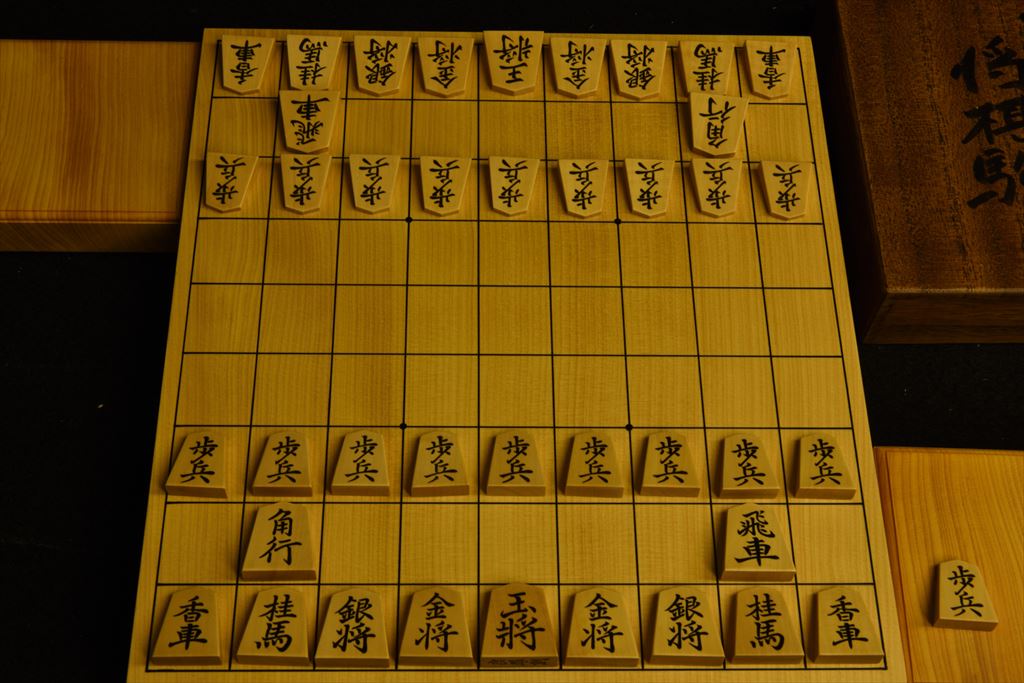 香車 桂馬 銀将 金将 王将 金将 銀将 桂馬 香車
飛車 角行
歩兵 歩兵 歩兵 歩兵 歩兵 歩兵 歩兵 歩兵 歩兵
歩兵 歩兵 歩兵 歩兵 歩兵 歩兵 歩兵 歩兵 歩兵
角行 飛車
香車 桂馬 銀将 金将 玉将 金将 銀将 桂馬 香車
将棋駒
歩兵